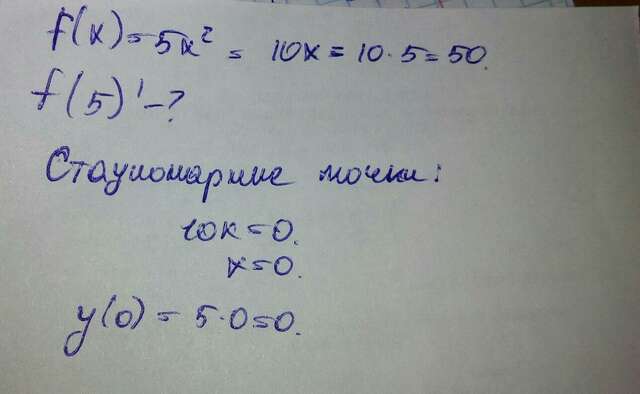 f(x) = 5x² = 10x = 10·5 = 50.
f(5)' - ?
Стационарные точки:
10x = 0.
x = 0.
y(0) = 5·0 = 0.